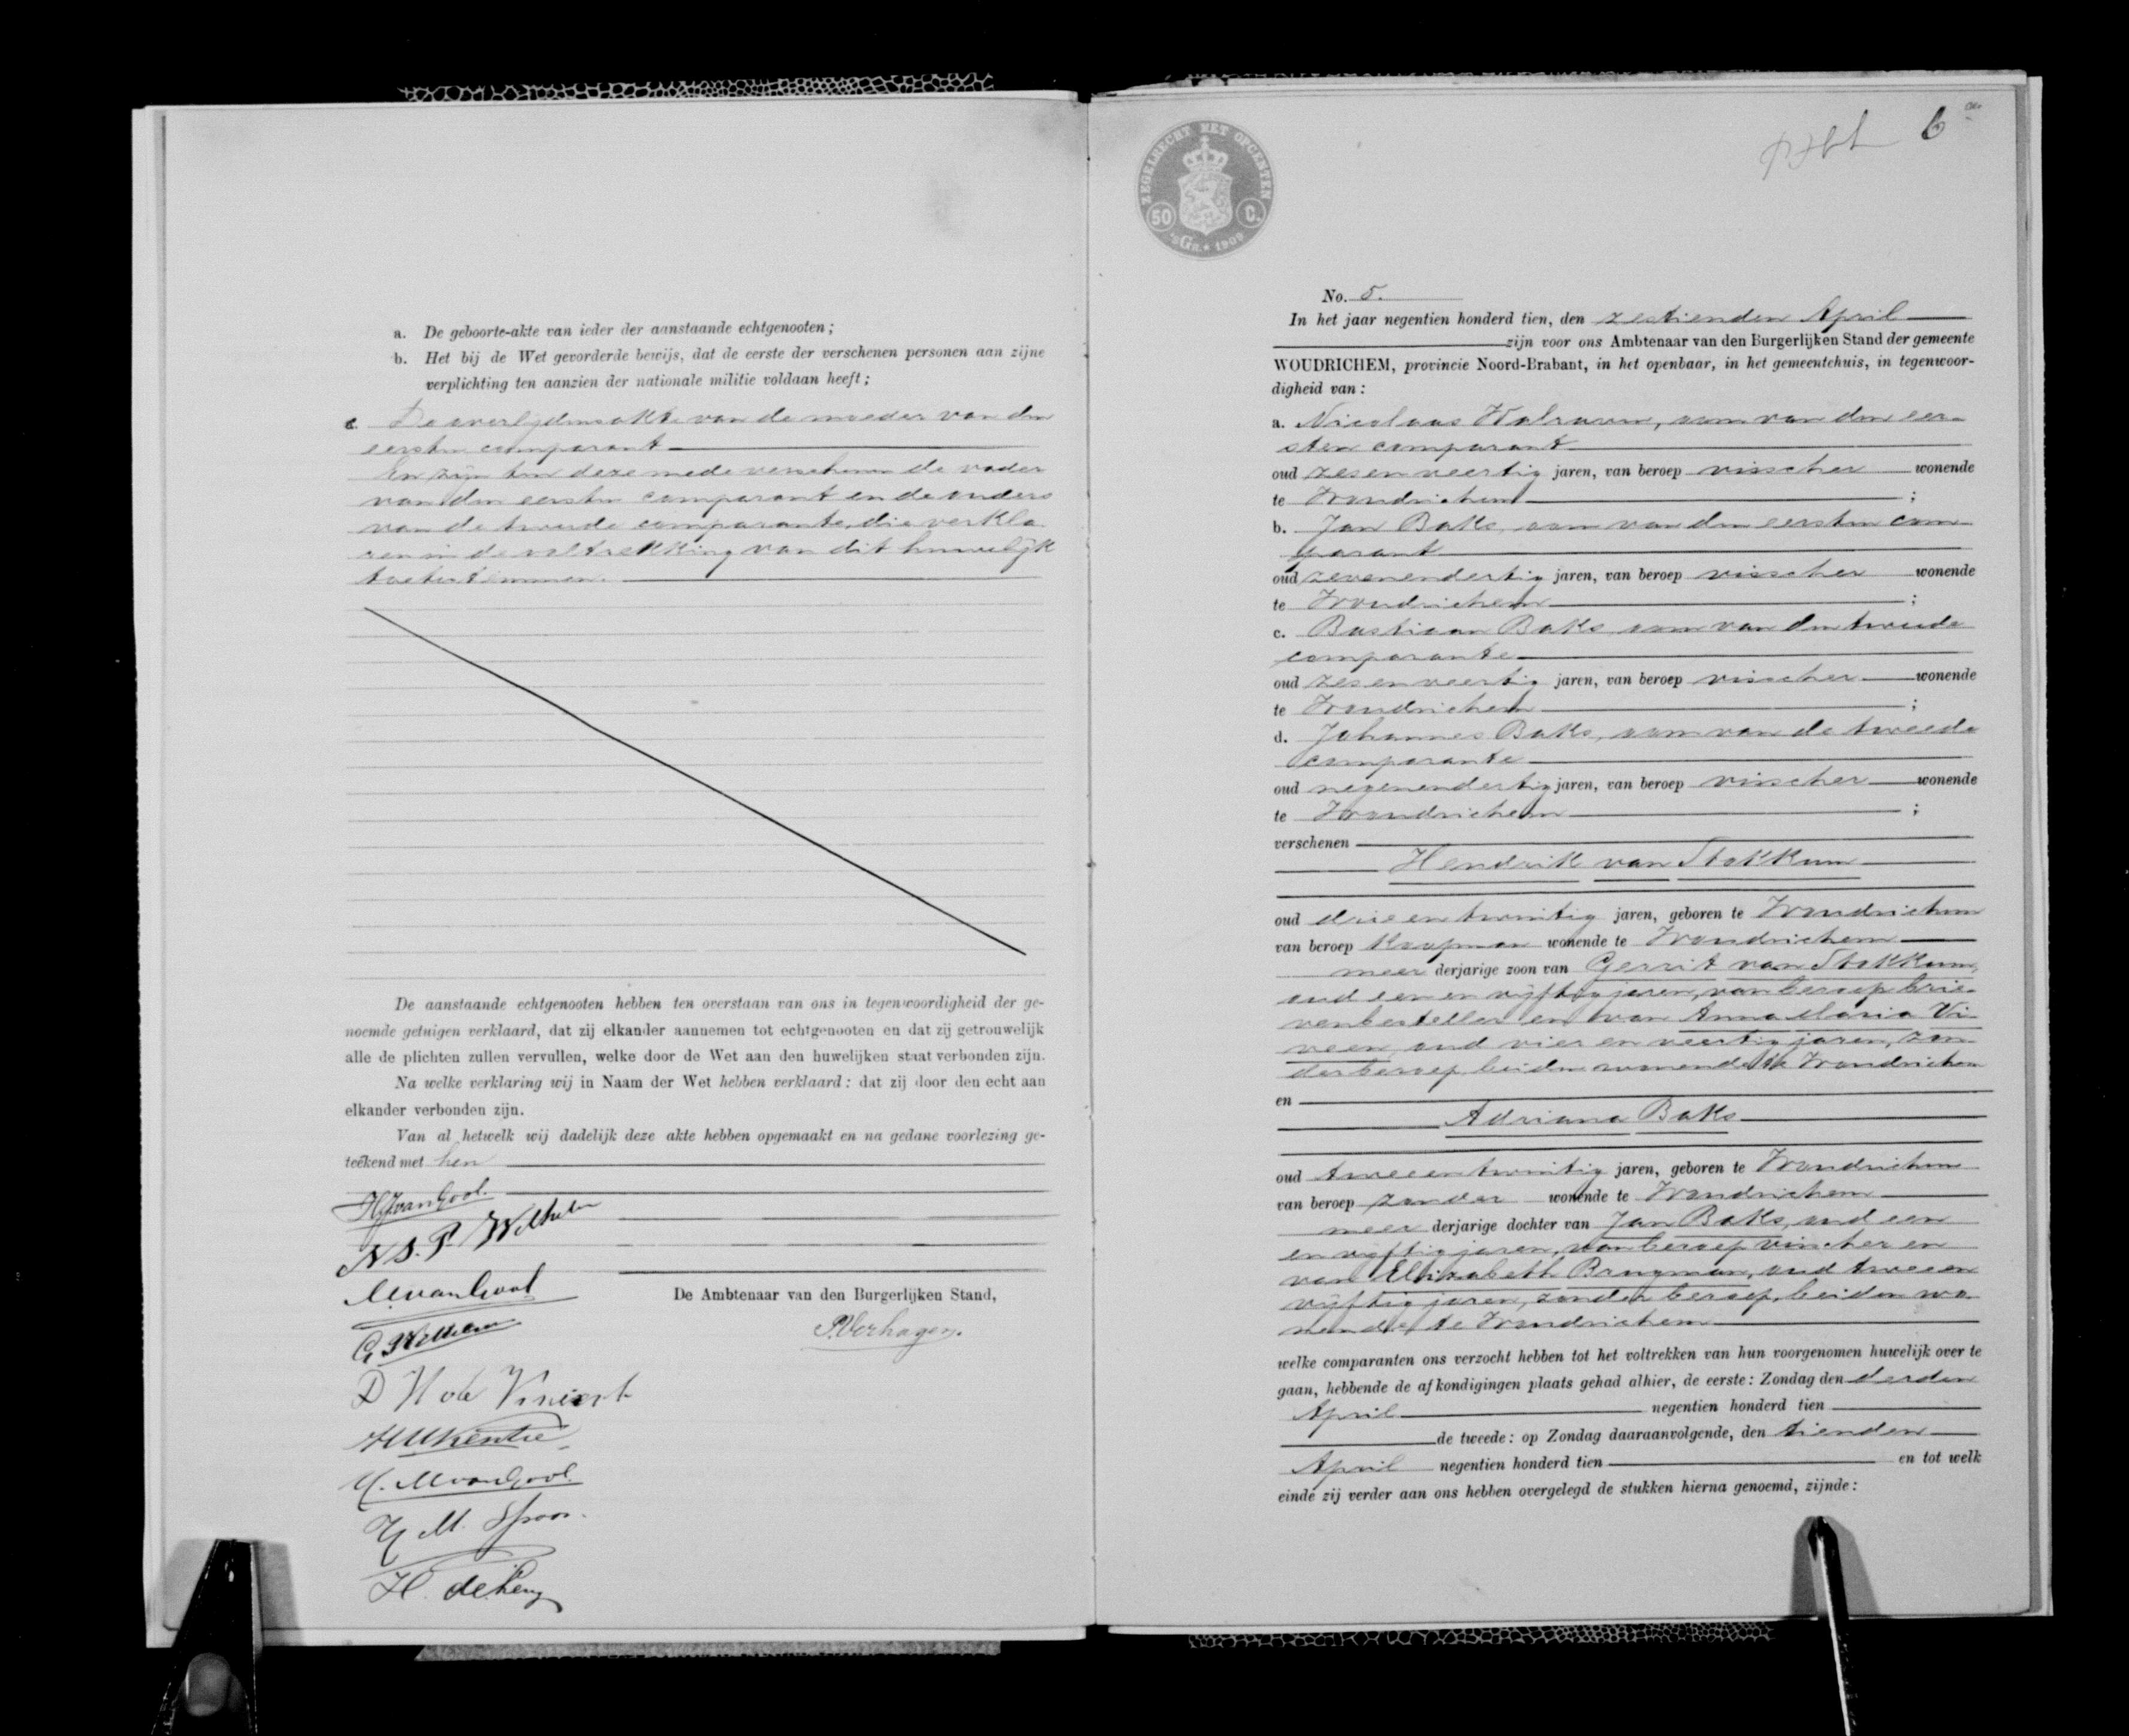 a. De geboorte-akte van ieder der aanstaande echtgenooten;
b. Het bij de Wet gevorderde bewijs, dat de eerste der verschenen personen aan zijne
verplichting ten aanzien der nationale militie voldaan heeft;
c. De overlijdensakte van de moeder van den
eersten comparant
En zijn ten deze mede verschenen de vader
van den eersten comparant en de ouders
van de tweede comparante, die verkla
ren in de voltrekking van dit huwelijk
toetestemmen.
De aanstaande echtgenooten hebben ten overstaan van ons in tegenwoordigheid der ge-
noemde getuigen verklaard, dat zij elkander aannemen tot echtgenooten en dat zij getrouwelijk
alle de plichten zullen vervullen, welke door de Wet aan den huwelijken staat verbonden zijn.
Na welke verklaring wij in Naam der Wet hebben verklaard: dat zij door den echt aan
elkander verbonden zijn.
Van al hetwelk wij dadelijk deze akte hebben opgemaakt en na gedane voorlezing ge-
teekend met hen
HJvanGool.
N S. P. Wilhelm
M van Gool
De Ambtenaar van den Burgerlijken Stand,
P. Verhagen.
G Wilhelm
D H de
M. M van Gool.
H M. Spoor.
H. de
ZEGELRECHT MET OPCENTEN
50 C.
1909
6
No. 5.
In het jaar negentien honderd tien, den zestienden April
zijn voor ons Ambtenaar van den Burgerlijken Stand der gemeente
WOUDRICHEM, provincie Noord-Brabant, in het openbaar, in het gemeentehuis, in tegenwoor-
digheid van:
a. Nicolaas Walraven, oom van den eer-
sten comparant
oud zesenveertig jaren, van beroep visscher wonende
te Woudrichem ;
b. Jan Baks, oom van den eersten com
parant
oud zevenendertig jaren, van beroep visscher wonende
te Woudrichem ;
c. Bastiaan Baks oom van den tweede
comparante
oud zesenveertig jaren, van beroep visscher wonende
te Woudrichem ;
d. Johannes Baks, oom van de tweede
comparante
oud negenendertig jaren, van beroep visscher wonende
te Woudrichem ;
verschenen
Hendrik van Stokkum
oud drieentwintig jaren, geboren te Woudrichem
van beroep Koopman wonende te Woudrichem
meerderjarige zoon van Gerrit van Stokkum,
oud een en vijftig jaren, van beroep brie-
venbesteller en van Anna Maria Vi
veen, oud vier en veertig jaren, zon
der beroep, beiden wonende te Woudrichem
en
Adriana Baks
oud tweeentwintig jaren, geboren te Woudrichem
van beroep zonder wonende te Woudrichem
meerderjarige dochter van Jan Baks, oud een
en vijftig jaren, van beroep visscher en
van Elizabeth Brugman, oud tweeen
vijftig jaren, zonder beroep, beiden wo
nende te Woudrichem
welke comparanten ons verzocht hebben tot het voltrekken van hun voorgenomen huwelijk over te
gaan, hebbende de afkondigingen plaats gehad alhier, de eerste: Zondag den derden
April negentien honderd tien
de tweede: op Zondag daaraanvolgende, den tienden
April negentien honderd tien en tot welk
einde zij verder aan ons hebben overgelegd de stukken hierna genoemd, zijnde: